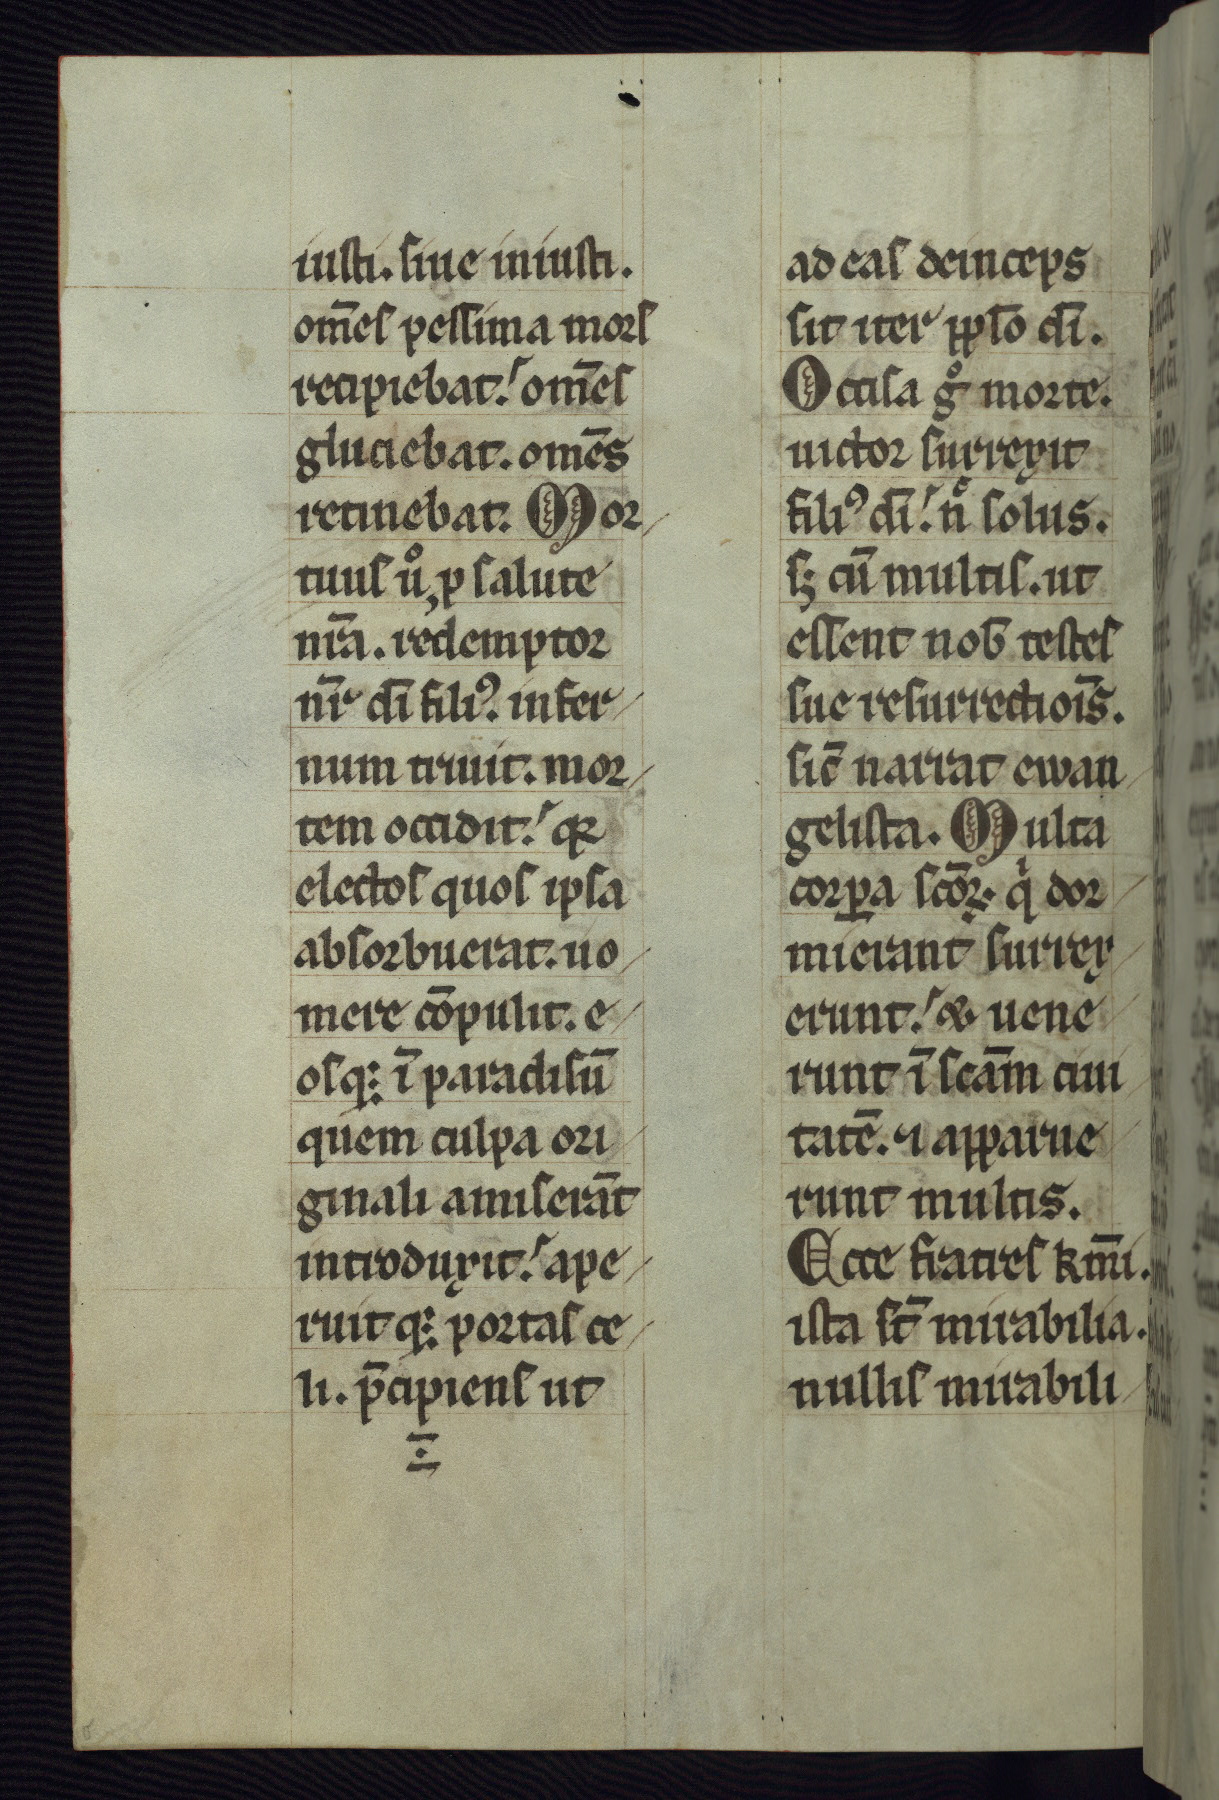 iusti. siue iniusti.
om̄es pessima mors
recipiebat. om̄es
glutiebat. omēs
retinebat. Mor
tuus u̾o, p salute
nr̄a. redemptor
nr̄ dī filiꝰ. infer
num triuit. mor
tem occidit. qꝛ
electos quos ipsa
absorbuerat. uo
mere cōpulit. e
osq; ī paradisū
quem culpa ori
ginali amiserāt
introduxit. ape
ruitq; portas ce
li. p̄cipiens ut
I
ad eas deinceps
sit iter pp̄lo dī.
Occisa gͦ morte.
uictor surrexit
filiꝰ dī. n̄ solus.
sꝫ cū multis. ut
essent nob̄ testes
sue resurrectiōis.
sic̄ narrat ewan
gelista. Multa
corꝑa scōꝝ. qͥ dor
mierant surrex
erunt. & uene
runt ī scām ciui
tatē. ⁊ apparue
runt multis.
Ecce fratres km̄i.
ista st̄ mirabilia.
nullis mirabili